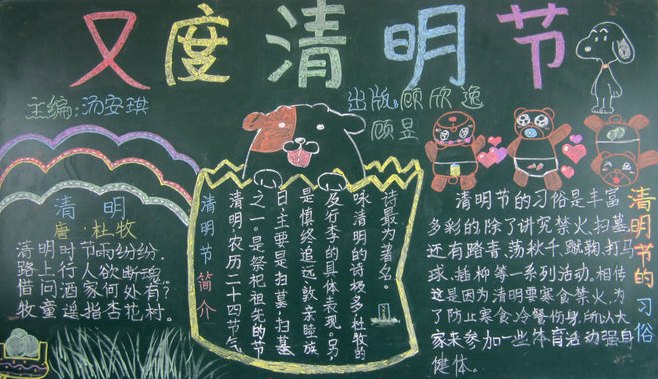 又度清明节
主编:汤安琪
出版:顾欣逸
顾昱
清明
唐·杜牧
清明时节雨纷纷.
路上行人欲断魂.
借问酒家何处有?
牧童遥指杏花村.
清明节简介
清明,农历二十四节气
之一。是祭祀祖先的节
日主要是扫墓,扫墓
是慎终追远、敦亲睦族
及行孝的具体表现。另,
咏清明的诗极多杜牧的
诗最为著名。
清明节的习俗
清明节的习俗是丰富
多彩的,除了讲究禁火、扫墓,
还有踏青、荡秋千、蹴鞠、打马
球、插柳等一系列活动。相传
这是因为清明要寒食禁火,为
了防止寒食、冷餐伤身,所以大
家来参加一些体育活动强自
健体。